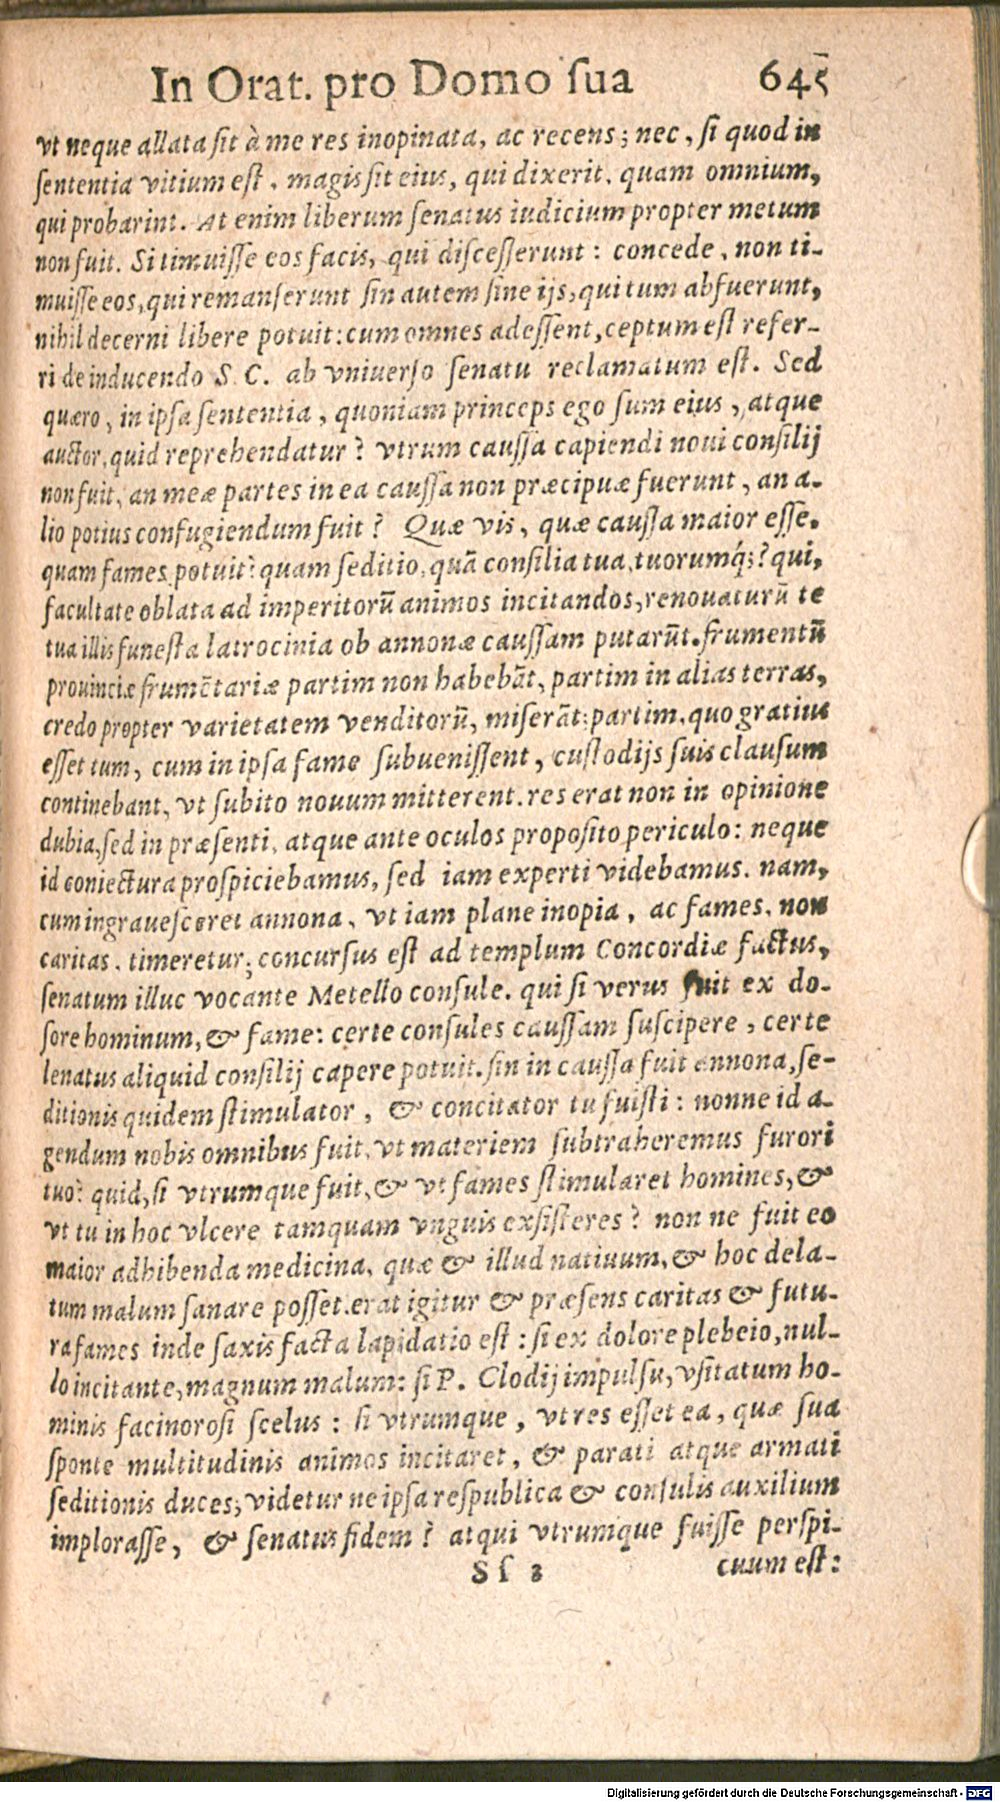 In Orat. pro Domo ſua 645
vt neque allata ſit à me res inopinata, ac recens; nec, ſi quod in
ſententia vitium eſt, magis ſit eius, qui dixerit, quam omnium,
qui probarint. At enim liberum ſenatus iudicium propter metum
non fuit. Si timuiſſe eos facis, qui diſceſſerunt: concede, non ti-
muiſſe eos, qui remanſerunt ſin autem ſine ijs, qui tum abfuerunt,
nihil decerni libere potuit: cum omnes adeſſent, ceptum eſt refer-
ri de inducendo S. C. ab vniuerſo ſenatu reclamatum eſt. Sed
quæro, in ipſa ſententia, quoniam princeps ego ſum eius, atque
auctor, quid reprehendatur? vtrum cauſſa capiendi noui conſilij
non fuit, an meæ partes in ea cauſſa non præcipuæ fuerunt, an a-
lio potius confugiendum fuit? Quæ vis, quæ cauſſa maior eſſe,
quam fames potuit? quam ſeditio, quã conſilia tua, tuorumq́;? qui,
facultate oblata ad imperitorũ animos incitandos, renouaturũ te
tua illis funeſta latrocinia ob annonæ cauſſam putarũt. frumentũ
prouinciæ frumẽtariæ partim non habebãt, partim in alias terras,
credo propter varietatem venditorũ, miſerãt: partim, quo gratius
eſſet tum, cum in ipſa fame ſubueniſſent, cuſtodijs ſuis clauſum
continebant, vt ſubito nouum mitterent. res erat non in opinione
dubia, ſed in præſenti, atque ante oculos propoſito periculo: neque
id coniectura proſpiciebamus, ſed iam experti videbamus. nam,
cum ingraueſceret annona, vt iam plane inopia, ac fames, non
caritas, timeretur; concurſus eſt ad templum Concordiæ factus,
ſenatum illuc vocante Metello conſule. qui ſi verus fuit ex do-
lore hominum, & fame: certe conſules cauſſam ſuſcipere, certe
ſenatus aliquid conſilij capere potuit. ſin in cauſſa fuit annona, ſe-
ditionis quidem ſtimulator, & concitator tu fuiſti: nonne id a-
gendum nobis omnibus fuit, vt materiem ſubtraheremus furori
tuo? quid, ſi vtrumque fuit, & vt fames ſtimularet homines, &
vt tu in hoc vlcere tamquam vnguis exſiſteres? non ne fuit eo
maior adhibenda medicina, quæ & illud natiuum, & hoc dela-
tum malum ſanare poſſet. erat igitur & præſens caritas & futu-
ra fames inde ſaxis facta lapidatio eſt: ſi ex dolore plebeio, nul-
lo incitante, magnum malum: ſi P. Clodij impulſu, vſitatum ho-
minis facinoroſi ſcelus: ſi vtrumque, vt res eſſet ea, quæ ſua
ſponte multitudinis animos incitaret, & parati atque armati
ſeditionis duces; videtur ne ipſa reſpublica & conſulis auxilium
imploraſſe, & ſenatus fidem? atqui vtrumque fuiſſe perſpi-
S ſ 3 cuum eſt:
Digitalisierung gefördert durch die Deutsche Forschungsgemeinschaft - DFG